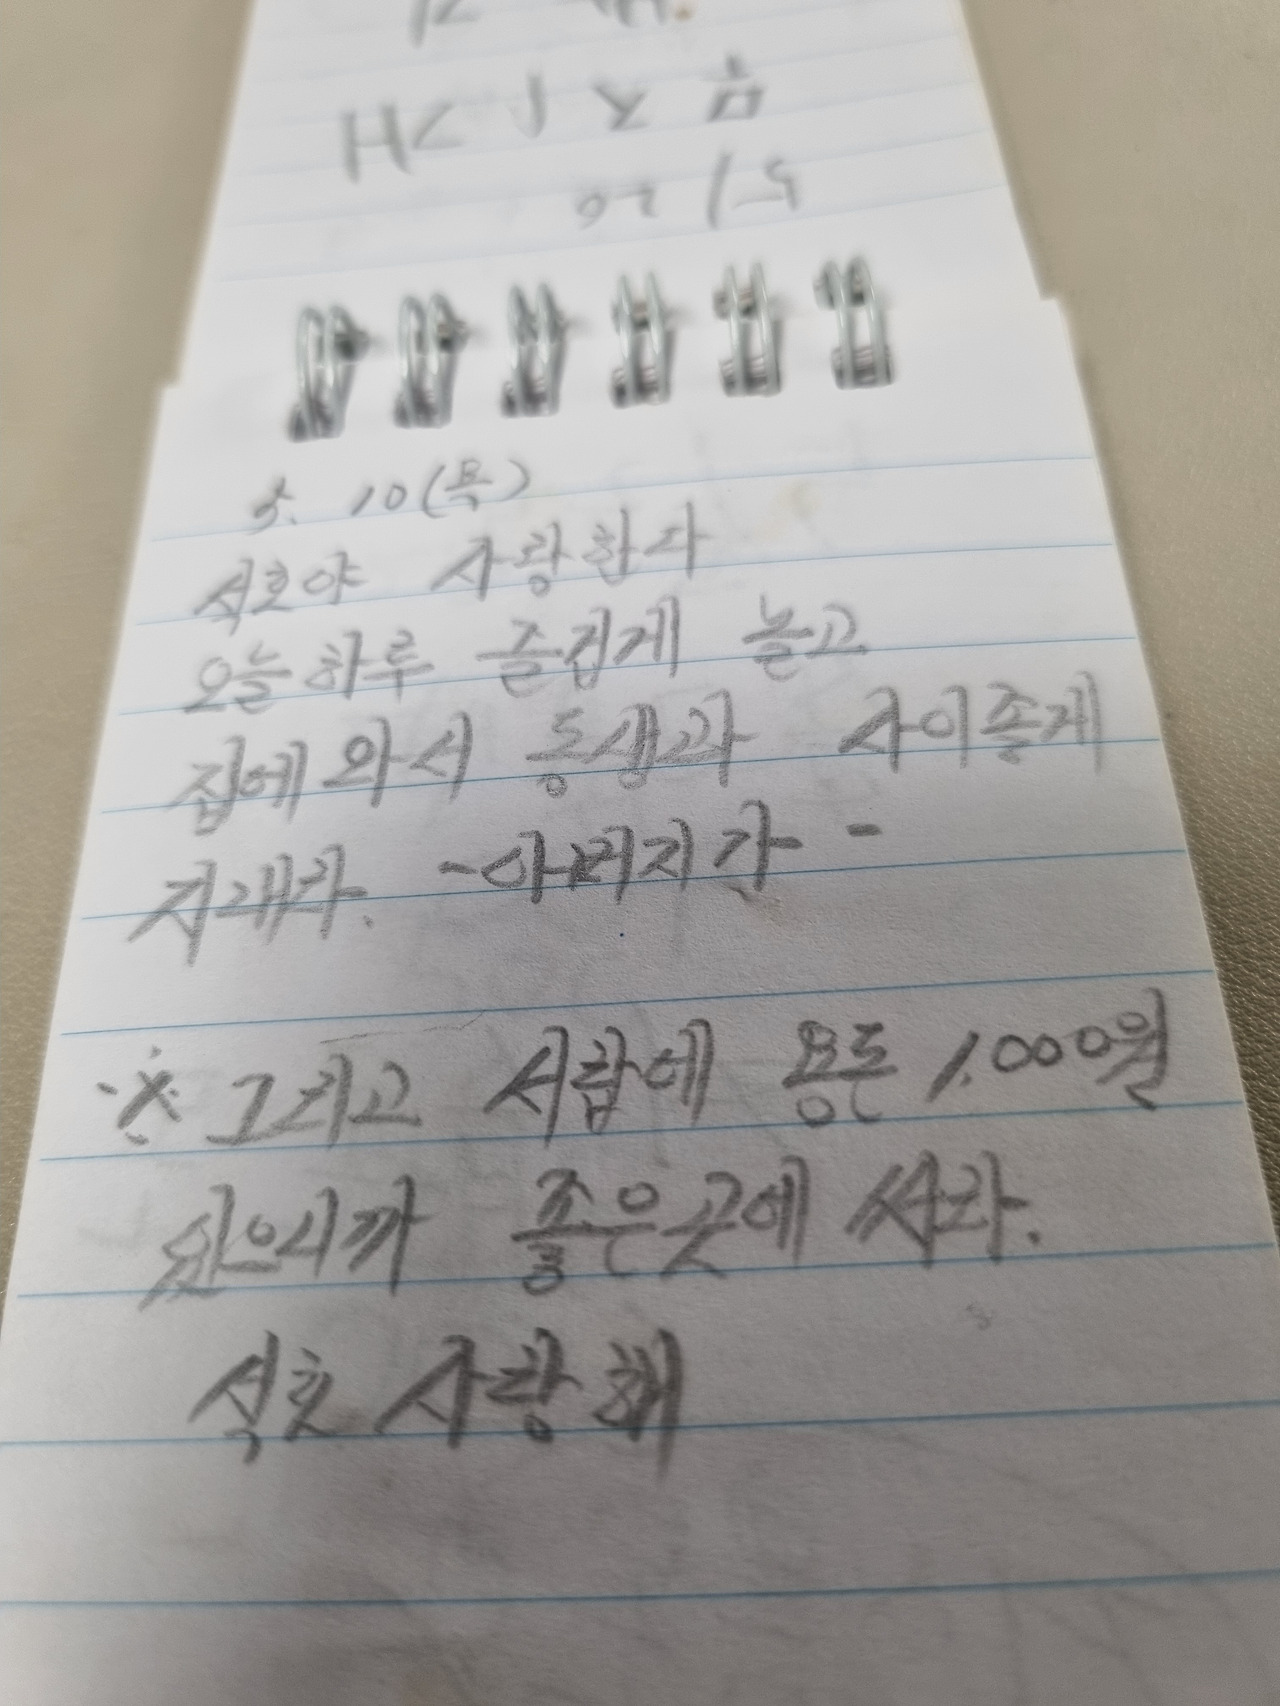 5. 10(목)
석호야 사랑한다
오늘하루 즐겁게 놀고
집에와서 동생과 사이좋게
지내라. -아버지가-
※ 그리고 서랍에 용돈 1,000원
있으니까 좋은곳에 써라.
석호 사랑해